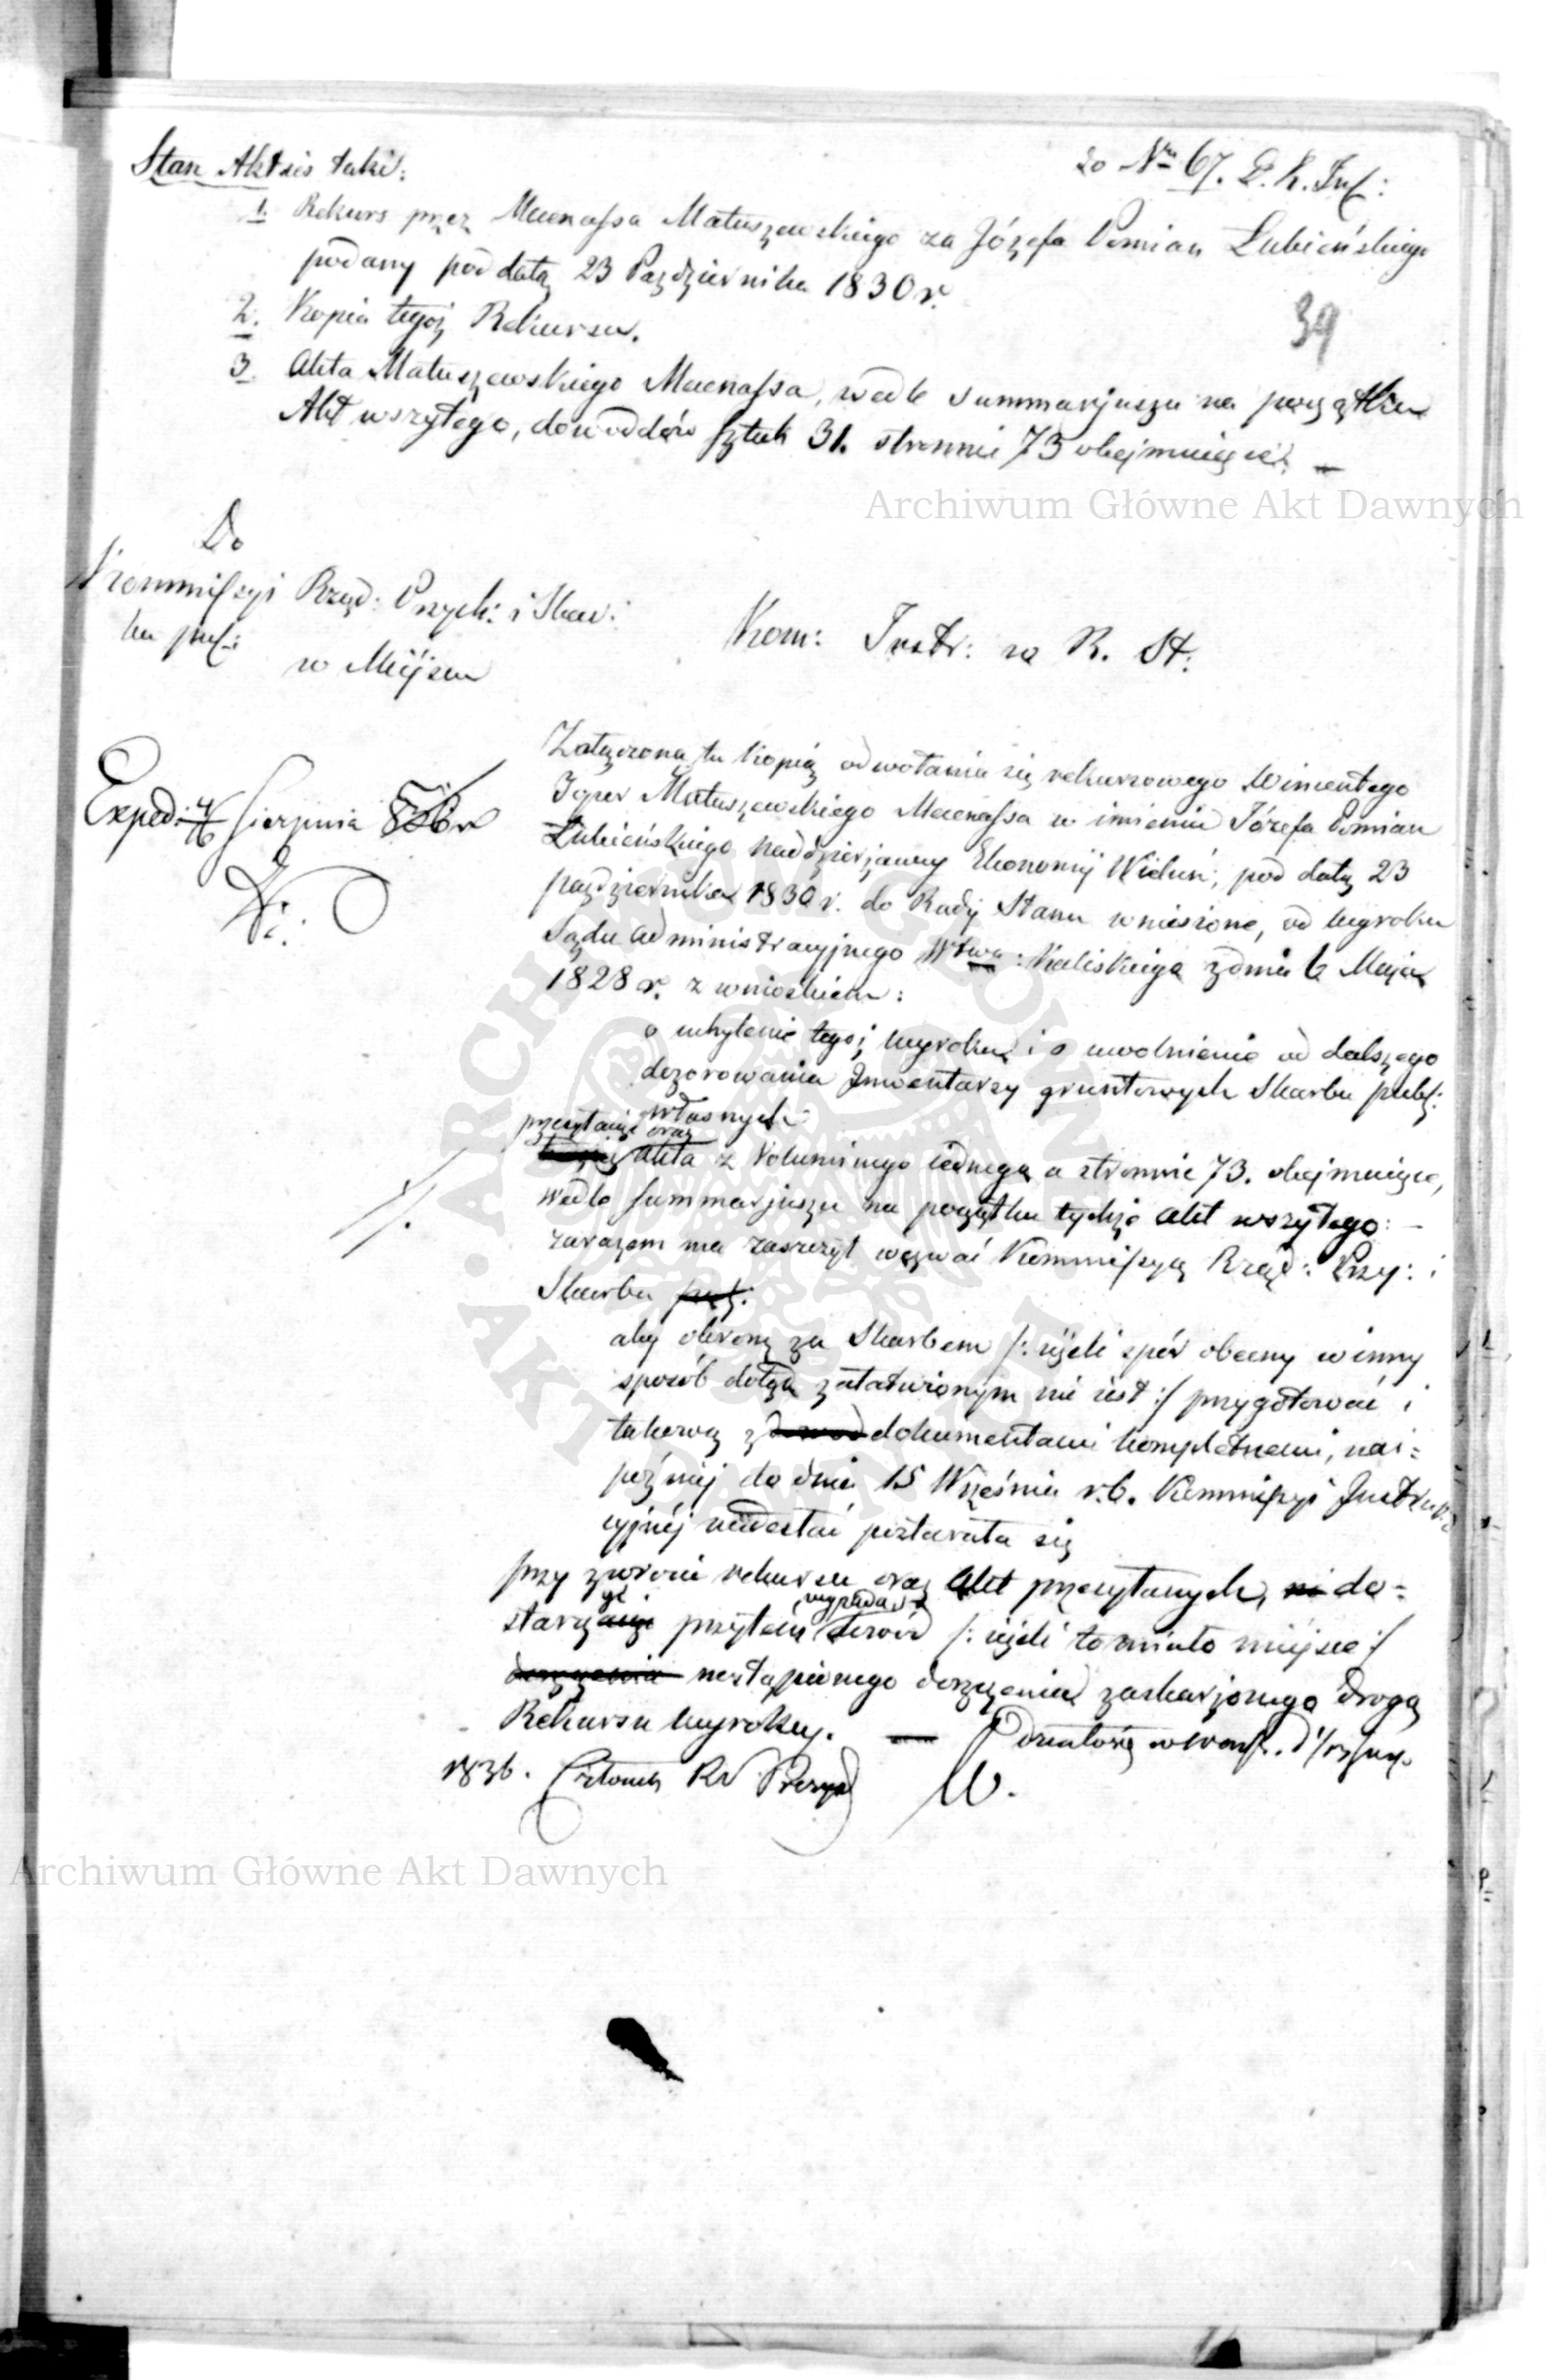 Stan Akt jes taki:
do Nru 67. D. K. Inf:
1. Rekurs przez Mecenassa Matuszewskiego za Józefa Pomian Łubieńskiego
podany pod datą 23 Października 1830 r.
39
2. Kopia tegoż Rekursu.
3. Akta Matuszewskiego Mecenassa, wedle Summarjuszu na początku
Akt wszytego, dowoddów sztuk 31. stronnic 73 obejmujące. —
Archiwum Główne Akt Dawnych
Do
Kommissyi Rząd: Przych: i Skar:
w Miejscu
Kom: Instr: R. St:
Exped: 4/16 Sierpnia 836 r
Załączoną tu kopią odwołania się rekursowego Wincentego
Matuszewskiego Mecenassa w imieniu Józefa Pomian
Łubieńskiego naddzierżawcy Ekonomij Wieluń, pod datą 23
października 1830 r. do Rady Stanu wniesione, od wyroku
Sądu administracyjnego Wtwa: Kaliskiego z dnia 6 Maja
1828 r. z wnioskiem:
o uchylenie tegoż wyroku i o uwolnienie od dalszego
dozorowania Inwentarzy gruntowych Skarbu publ:
własnych
przesyłając oraz
akta z Voluminego jednego a stronnic 73. obejmujące,
wedle Summarjuszu na początku tychże akt wszytego: —
zarazem ma zaszczyt wezwać Kommissyą Rząd: Przy: i
Skarbu
aby obronę za Skarbem /: jeżeli spór obecny w inny
sposób dotąd załatwionym nie jest :/ przygotować i
takową z dokumentami kompletnemi, naj=
później do dnia 15 Września r.b. Kommissyi Instruk
cyjnéj nadesłać postarała się
przy zwrocie rekursu oraz akt przesyłanych, do=
starcz przytem dowód /: jeżeli to miało miejsce :/
nastąpionego doręczenia zaskarżonego drogą
Rekursu wyroku. —
1836. Członek RS Prezyd
Archiwum Główne Akt Dawnych
ARCHIWUM GŁÓWNE AKT DAWNYCH